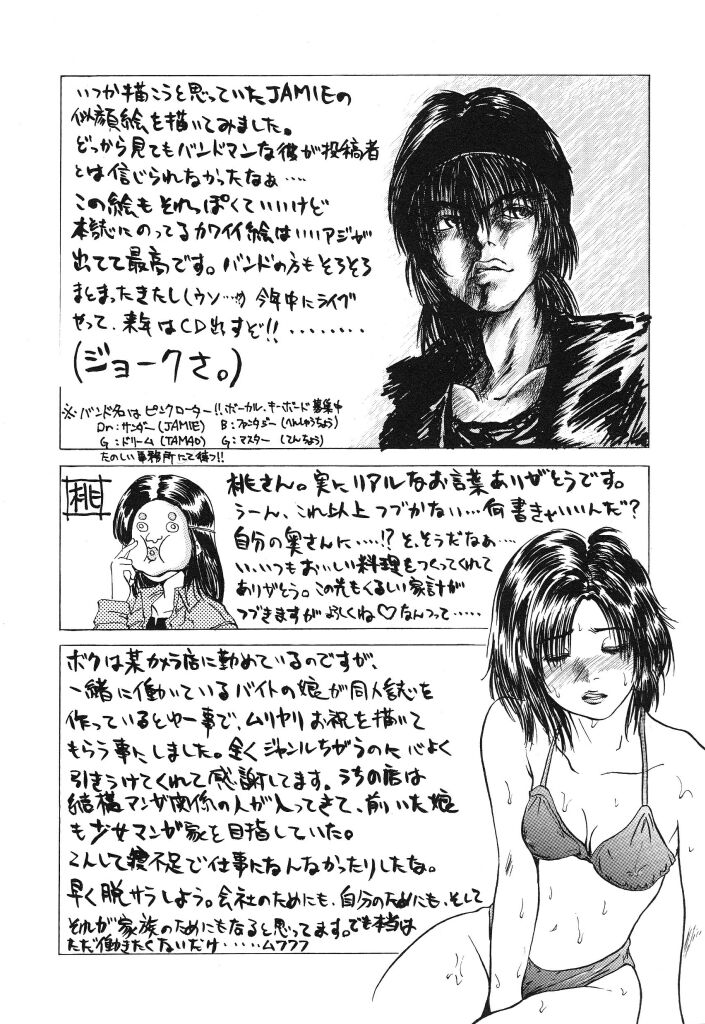 いつか描こうと思っていたJAMIEの
似顔絵を描いてみました。
どっから見てもバンドマンな彼が投稿者
とは信じられなかったなぁ‥‥
この絵もそれっぽくていいけど
本誌にのってるカワイイ絵はいいアジが
出てて最高です。バンドの方もそろそろ
まとまったきたし(ウソ…) 今年中にライブ
やって、来年はCD出すぞ!!‥‥‥‥
(ジョークさ。)
※バンド名はピンクローター!!ボーカル、キーボード募集中
Dr:サンダー(JAMIE) B:ファンタジー(へんしゅうちょう)
G:ドリーム(TAMAO) G:マスター(てんちょう)
たのしい事務所にて待つ!!
桃
桃さん。実にリアルなお言葉ありがとうです。
うーん、これ以上つづかない…何書きゃいいんだ?
自分の奥さんに‥‥!?そ、そうだなぁ…
い、いつもおいしい料理をつくってくれて
ありがとう。この先もくるしい家計が
つづきますがよろしくね♡なんつって‥‥
ボクは某カメラ店に勤めているのですが、
一緒に働いているバイトの娘が同人誌を
作っているとゆー事で、ムリヤリお祝を描いて
もらう事にしました。全くジャンルちがうのに心よく
引きうけてくれて感謝してます。うちの店は
結構マンガ関係の人が入ってきて、前いた娘
も少女マンガ家を目指していた。
こんして寝不足で仕事になんなかったりしたな。
早く脱サラしよう。会社のためにも、自分のためにも、そして
それが家族のためにもなると思ってます。でも本当は
ただ働きたくないだけ‥‥‥ムフフフ